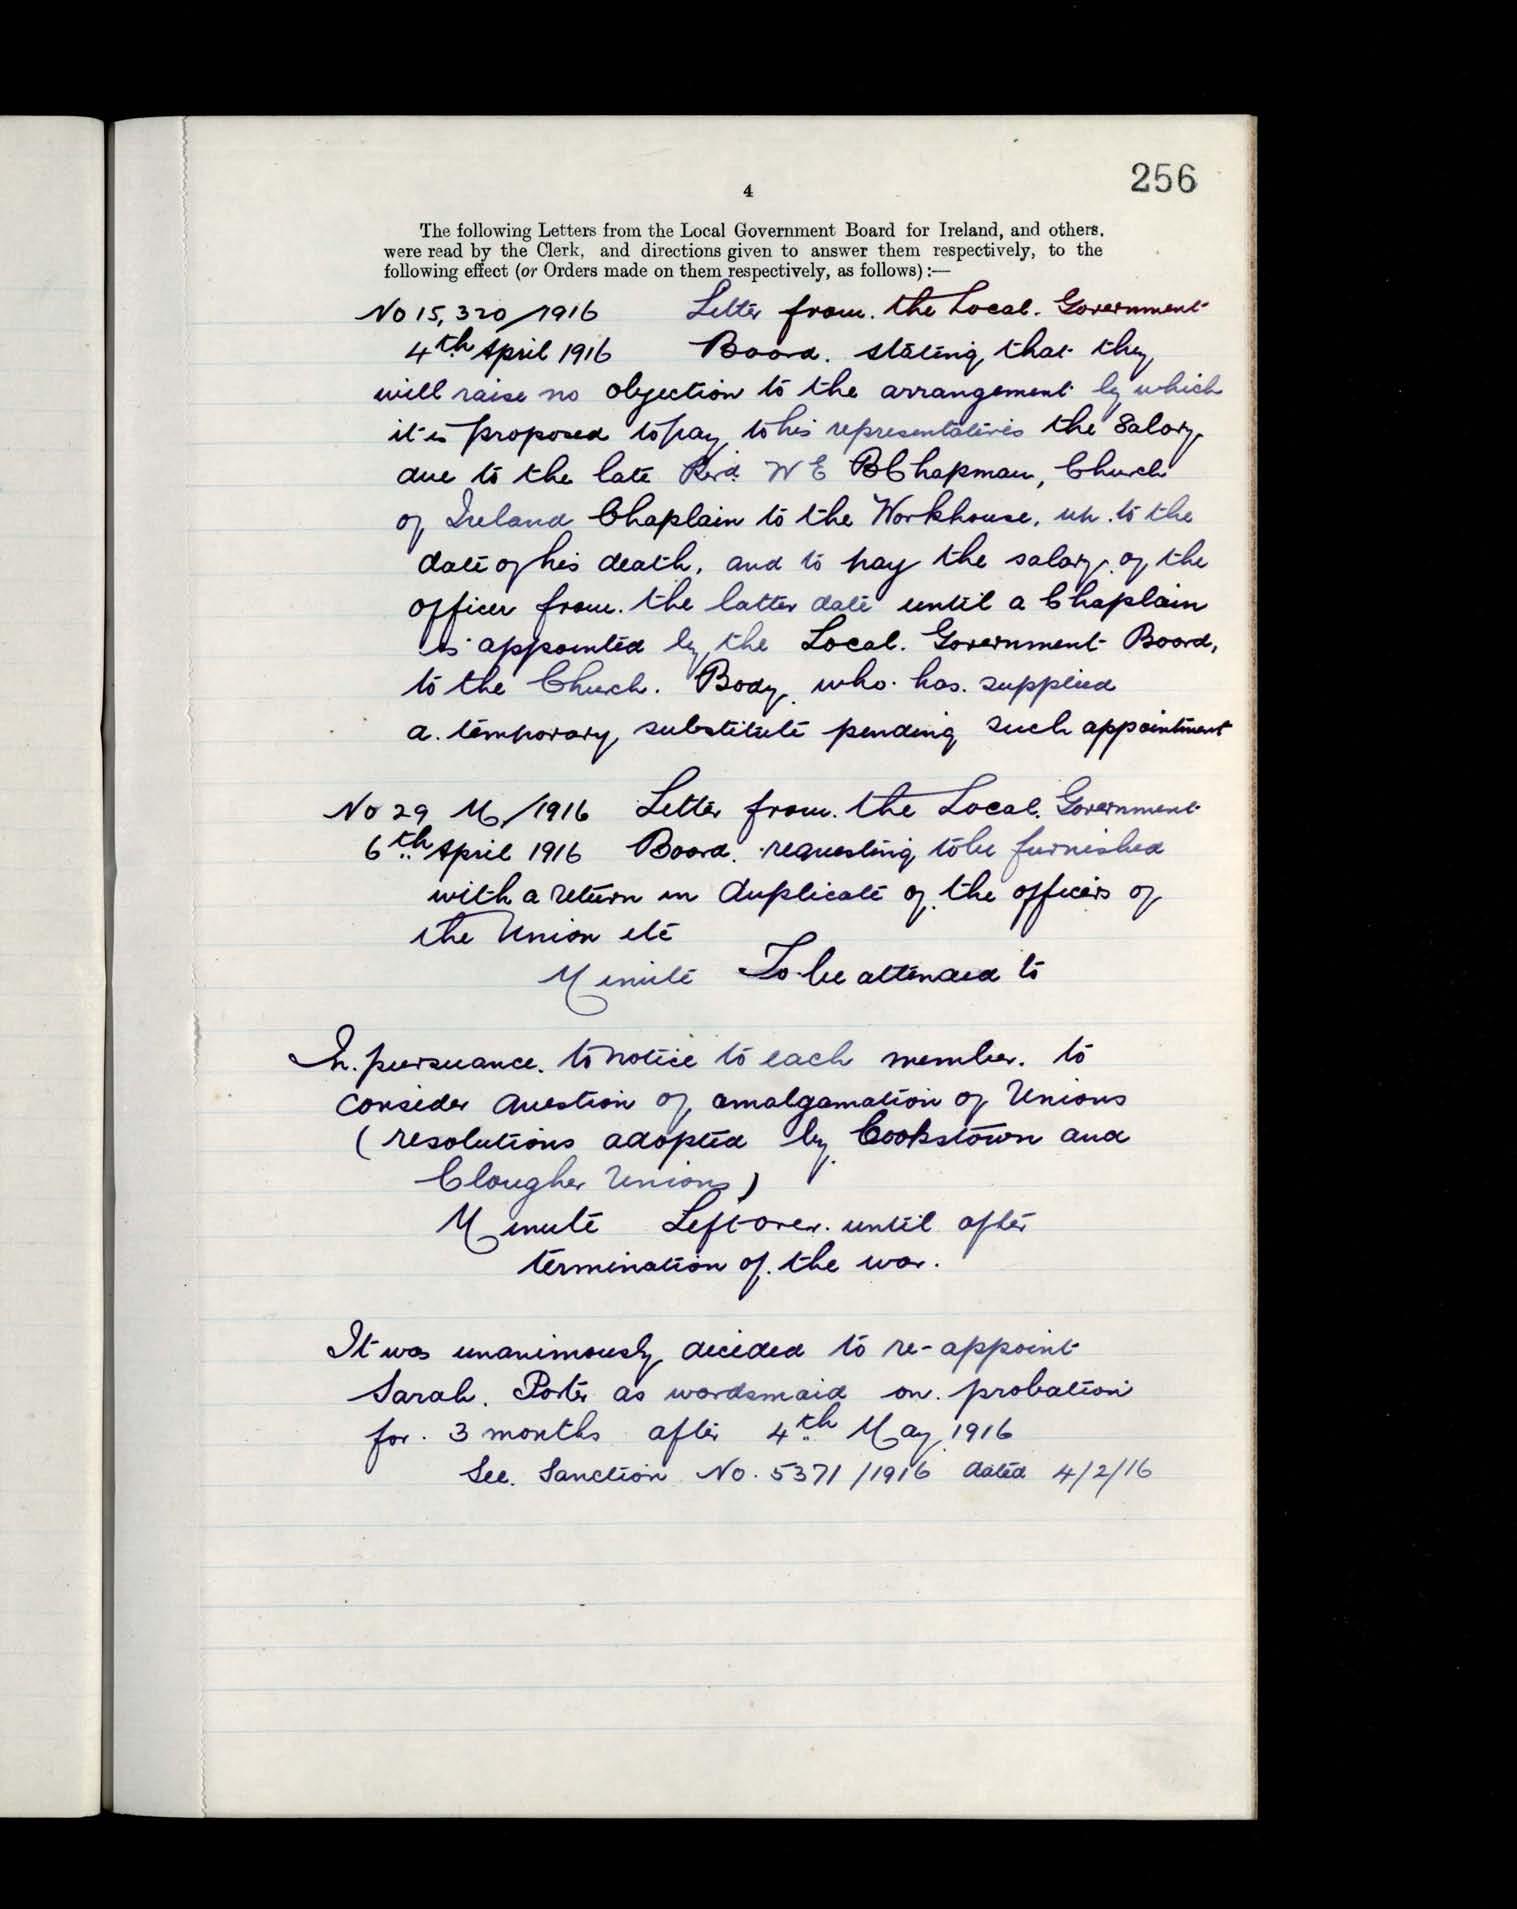 256
4
The following Letters from the Local Government Board for Ireland, and others,
were read by the Clerk, and directions given to answer them respectively, to the
following effect (or Orders made on them respectively, as follows) :—
No 15,320/1916 Letter from the Local Government
4th April 1916 Board. stating that they
will raise no objection to the arrangement by which
it is proposed to pay to his representatives the Salary
due to the late Revd. W E B Chapman, Church
of Ireland Chaplain to the Workhouse, up to the
date of his death, and to pay the salary of the
officer from the latter date until a Chaplain
is appointed by the Local Government Board,
to the Church Body who has supplied
a temporary substitute pending such appointment
No 29 M/1916 Letter from the Local Government
6th April 1916 Board requesting to be furnished
with a return in duplicate of the officers of
the Union etc
Minute To be attended to
In pursuance to notice to each member to
consider question of amalgamation of Unions
(resolutions adopted by Cookstown and
Clougher Unions)
Minute Left over until after
termination of the war.
It was unanimously decided to re-appoint
Sarah Porter as wardsmaid on probation
for 3 months after 4th May 1916
See Sanction No. 5371/1916 dated 4/2/16